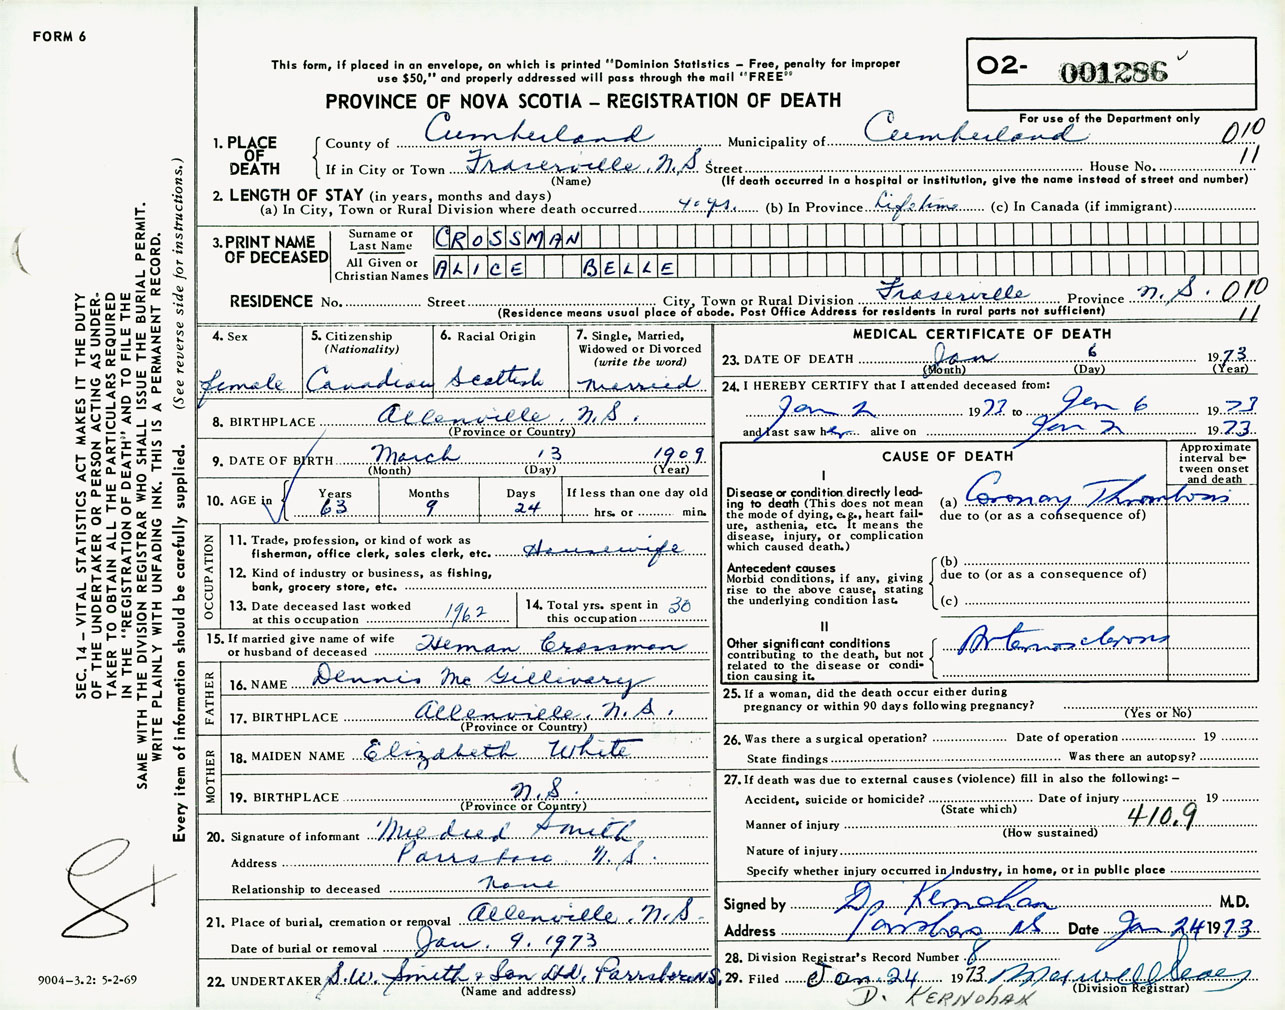 FORM 6
This form, if placed in an envelope, on which is printed "Dominion Statistics – Free, penalty for improper
use $50," and properly addressed will pass through the mail "FREE"
O2- 001286
PROVINCE OF NOVA SCOTIA – REGISTRATION OF DEATH
For use of the Department only
1. PLACE OF DEATH
County of Cumberland Municipality of Cumberland 010
If in City or Town Fraserville, N.S. Street House No. 11
(Name) (If death occurred in a hospital or institution, give the name instead of street and number)
2. LENGTH OF STAY (in years, months and days)
(a) In City, Town or Rural Division where death occurred 40 yrs. (b) In Province Lifetime (c) In Canada (if immigrant)
3. PRINT NAME OF DECEASED
Surname or Last Name CROSSMAN
All Given or Christian Names ALICE BELLE
RESIDENCE No. Street City, Town or Rural Division Fraserville Province N.S. 010
(Residence means usual place of abode. Post Office Address for residents in rural parts not sufficient) 11
4. Sex female
5. Citizenship (Nationality) Canadian
6. Racial Origin Scottish
7. Single, Married, Widowed or Divorced (write the word) Married
8. BIRTHPLACE Allenville, N.S.
(Province or Country)
9. DATE OF BIRTH March 13 1909
(Month) (Day) (Year)
10. AGE in Years 63 Months 9 Days 24 If less than one day old hrs. or min.
OCCUPATION
11. Trade, profession, or kind of work as
fisherman, office clerk, sales clerk, etc. Housewife
12. Kind of industry or business, as fishing,
bank, grocery store, etc.
13. Date deceased last worked at this occupation 1962
14. Total yrs. spent in this occupation 30
15. If married give name of wife
or husband of deceased Heman Crossman
FATHER
16. NAME Dennis Mc Gillivary
17. BIRTHPLACE Allenville, N.S.
(Province or Country)
MOTHER
18. MAIDEN NAME Elizabeth White
19. BIRTHPLACE N.S.
(Province or Country)
20. Signature of informant Mildred Smith
Address Parrsboro N.S.
Relationship to deceased None
21. Place of burial, cremation or removal Allenville, N.S.
Date of burial or removal Jan. 9, 1973
22. UNDERTAKER S.W. Smith & Son Ltd. Parrsboro N.S.
(Name and address)
MEDICAL CERTIFICATE OF DEATH
23. DATE OF DEATH Jan 6 1973
(Month) (Day) (Year)
24. I HEREBY CERTIFY that I attended deceased from:
Jan 2 1973 to Jan 6 1973
and last saw her alive on Jan 2 1973
CAUSE OF DEATH
Approximate interval between onset and death
I
Disease or condition directly leading to death (This does not mean the mode of dying, e.g., heart failure, asthenia, etc. It means the disease, injury, or complication which caused death.)
(a) Coronary Thrombosis
due to (or as a consequence of)
Antecedent causes
Morbid conditions, if any, giving rise to the above cause, stating the underlying condition last.
(b)
due to (or as a consequence of)
(c)
II
Other significant conditions
contributing to the death, but not related to the disease or condition causing it.
Arteriosclerosis
25. If a woman, did the death occur either during
pregnancy or within 90 days following pregnancy?
(Yes or No)
26. Was there a surgical operation? Date of operation 19
State findings Was there an autopsy?
27. If death was due to external causes (violence) fill in also the following:–
Accident, suicide or homicide? Date of injury 19
(State which)
Manner of injury 410.9
(How sustained)
Nature of injury
Specify whether injury occurred in Industry, in home, or in public place
Signed by D. Kernohan M.D.
Address Parrsboro NS Date Jan 24 1973
28. Division Registrar's Record Number 8
29. Filed Jan. 24 1973
(Division Registrar)
D. KERNOHAN
SEC. 14 – VITAL STATISTICS ACT MAKES IT THE DUTY
OF THE UNDERTAKER OR PERSON ACTING AS UNDER-
TAKER TO OBTAIN ALL THE PARTICULARS REQUIRED
IN THE "REGISTRATION OF DEATH" AND TO FILE THE
SAME WITH THE DIVISION REGISTRAR WHO SHALL ISSUE THE BURIAL PERMIT.
WRITE PLAINLY WITH UNFADING INK. THIS IS A PERMANENT RECORD.
Every item of information should be carefully supplied. (See reverse side for instructions.)
9004–3.2: 5-2-69